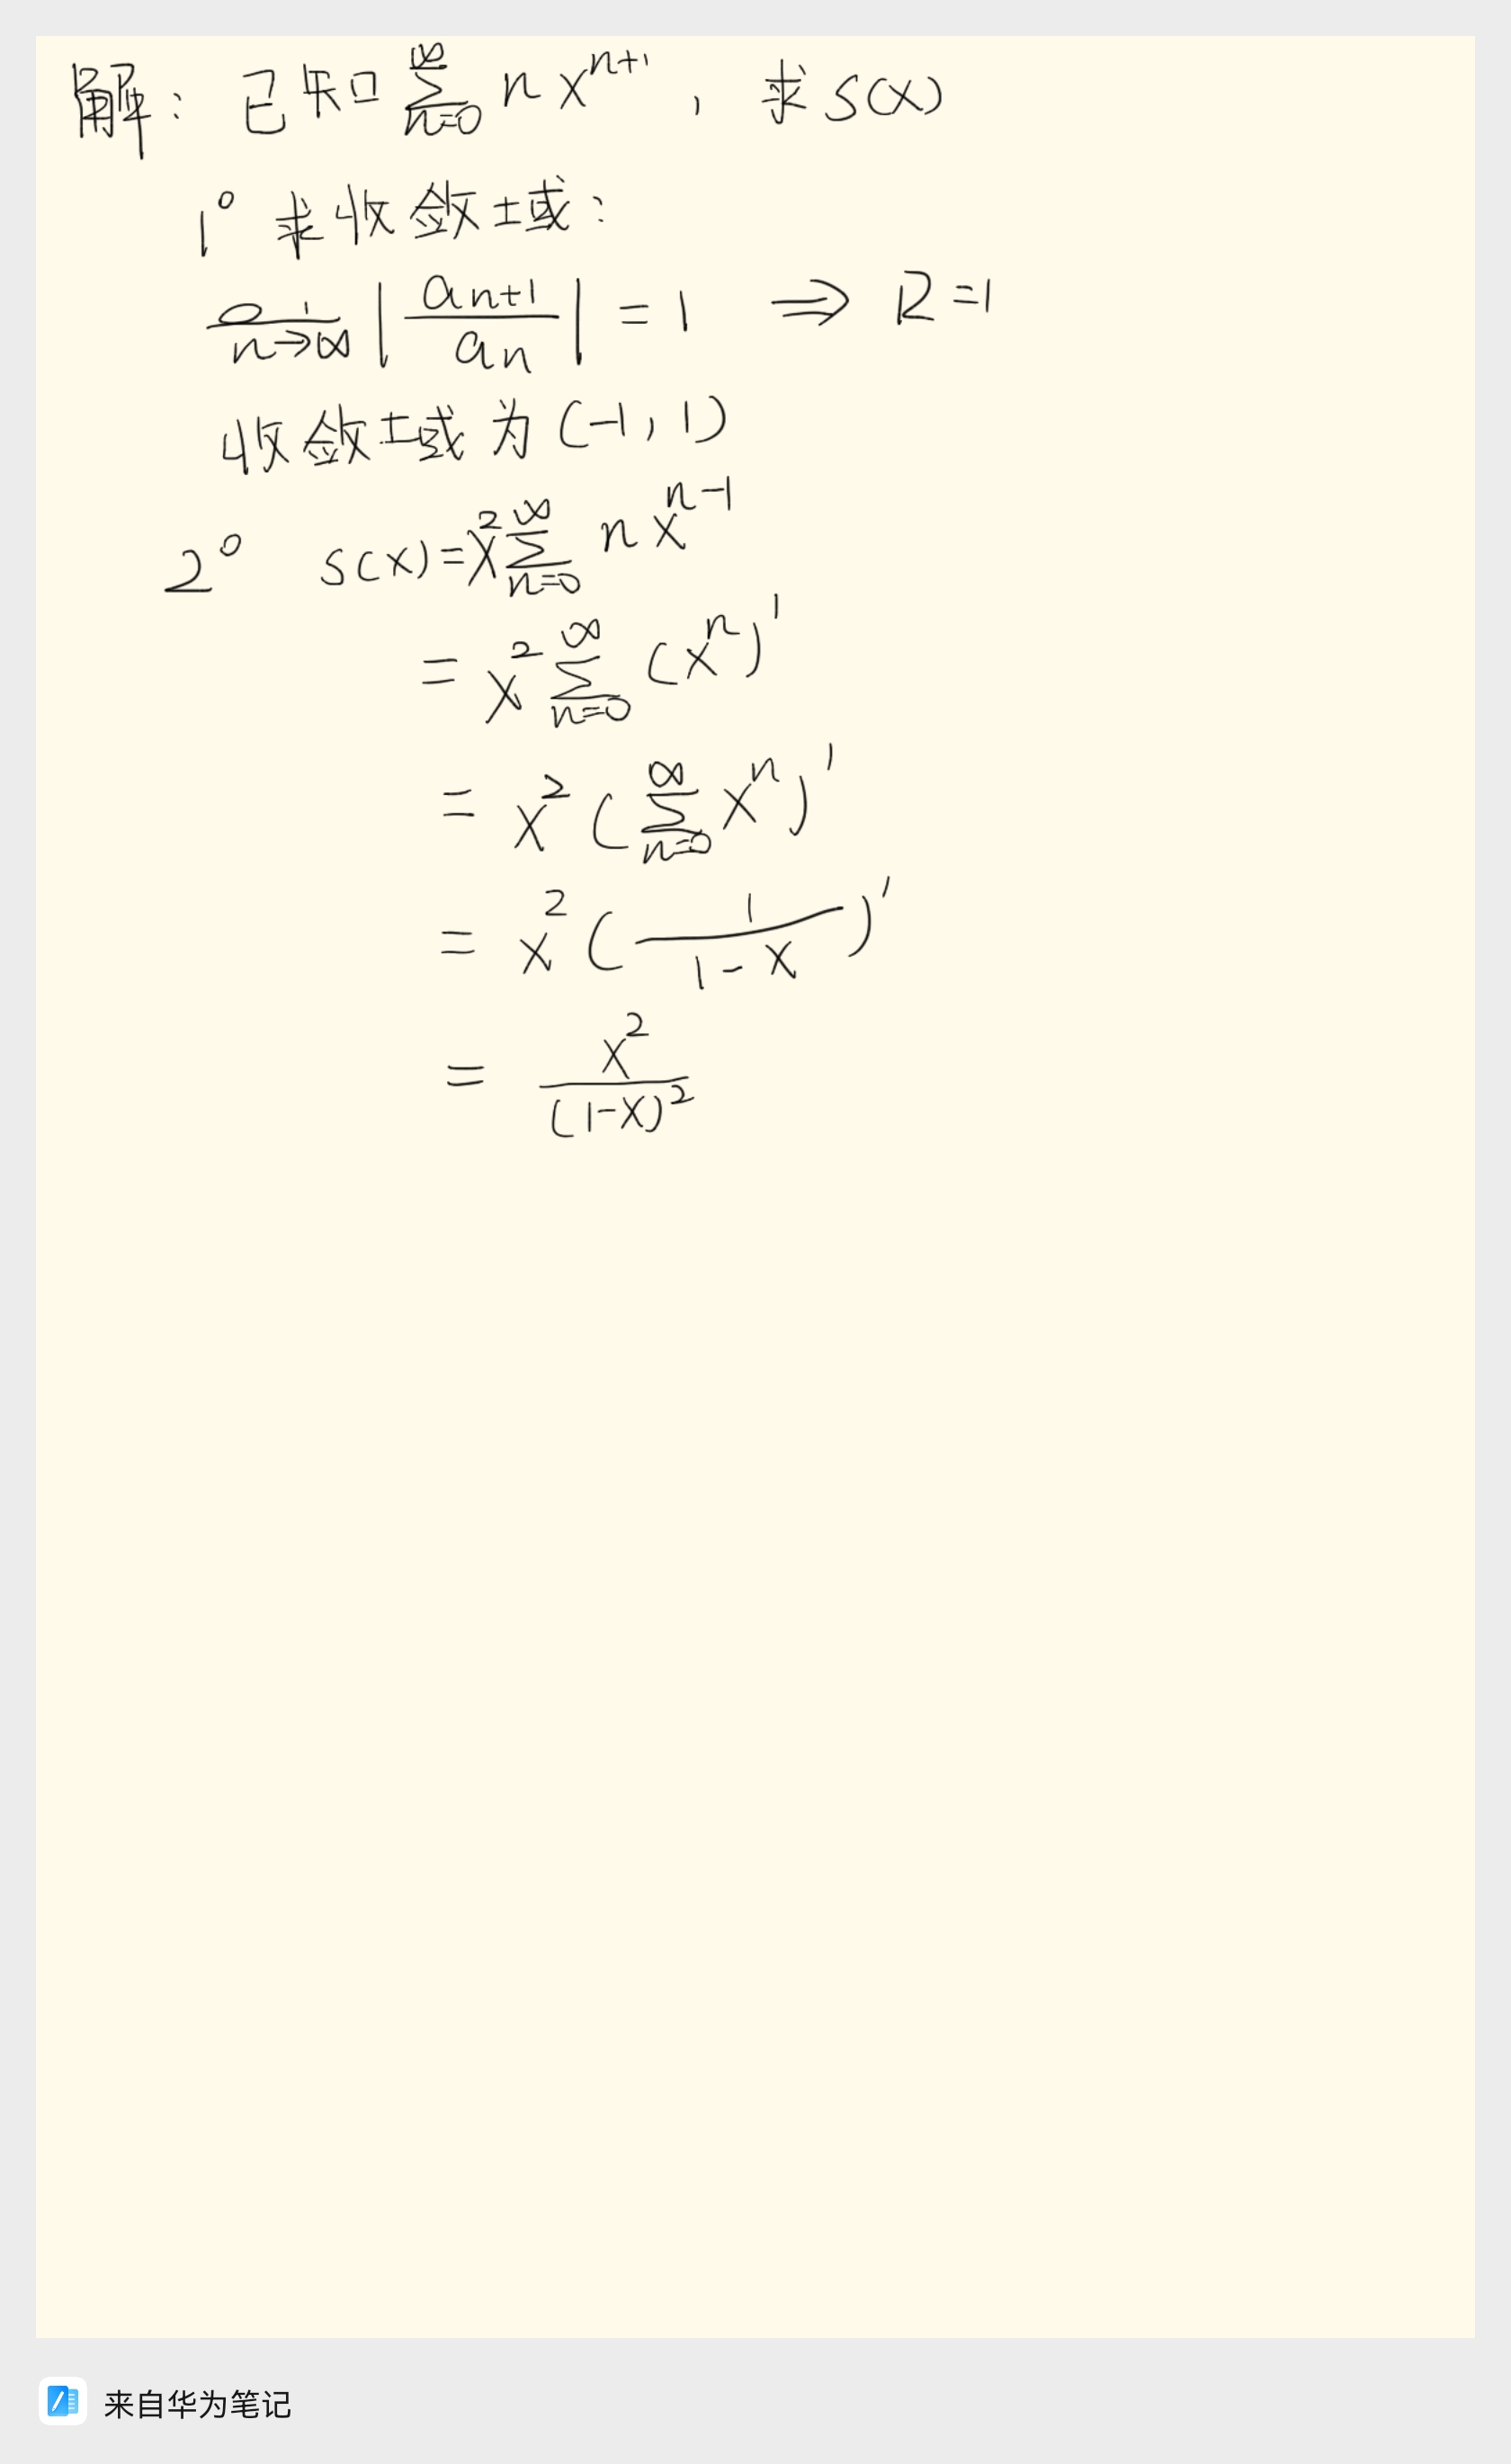 解：已知∑_{n=0}^{∞} n x^{n+1}，求S(x)
1° 求收敛域：
lim_{n→∞} |a_{n+1}/a_n| = 1 ⇒ R=1
收敛域为(-1, 1)
2° S(x)=x²∑_{n=0}^{∞} n x^{n-1}
= x²∑_{n=0}^{∞} (x^n)'
= x²(∑_{n=0}^{∞} x^n)'
= x²(1/(1-x))'
= x²/(1-x)²
来自华为笔记